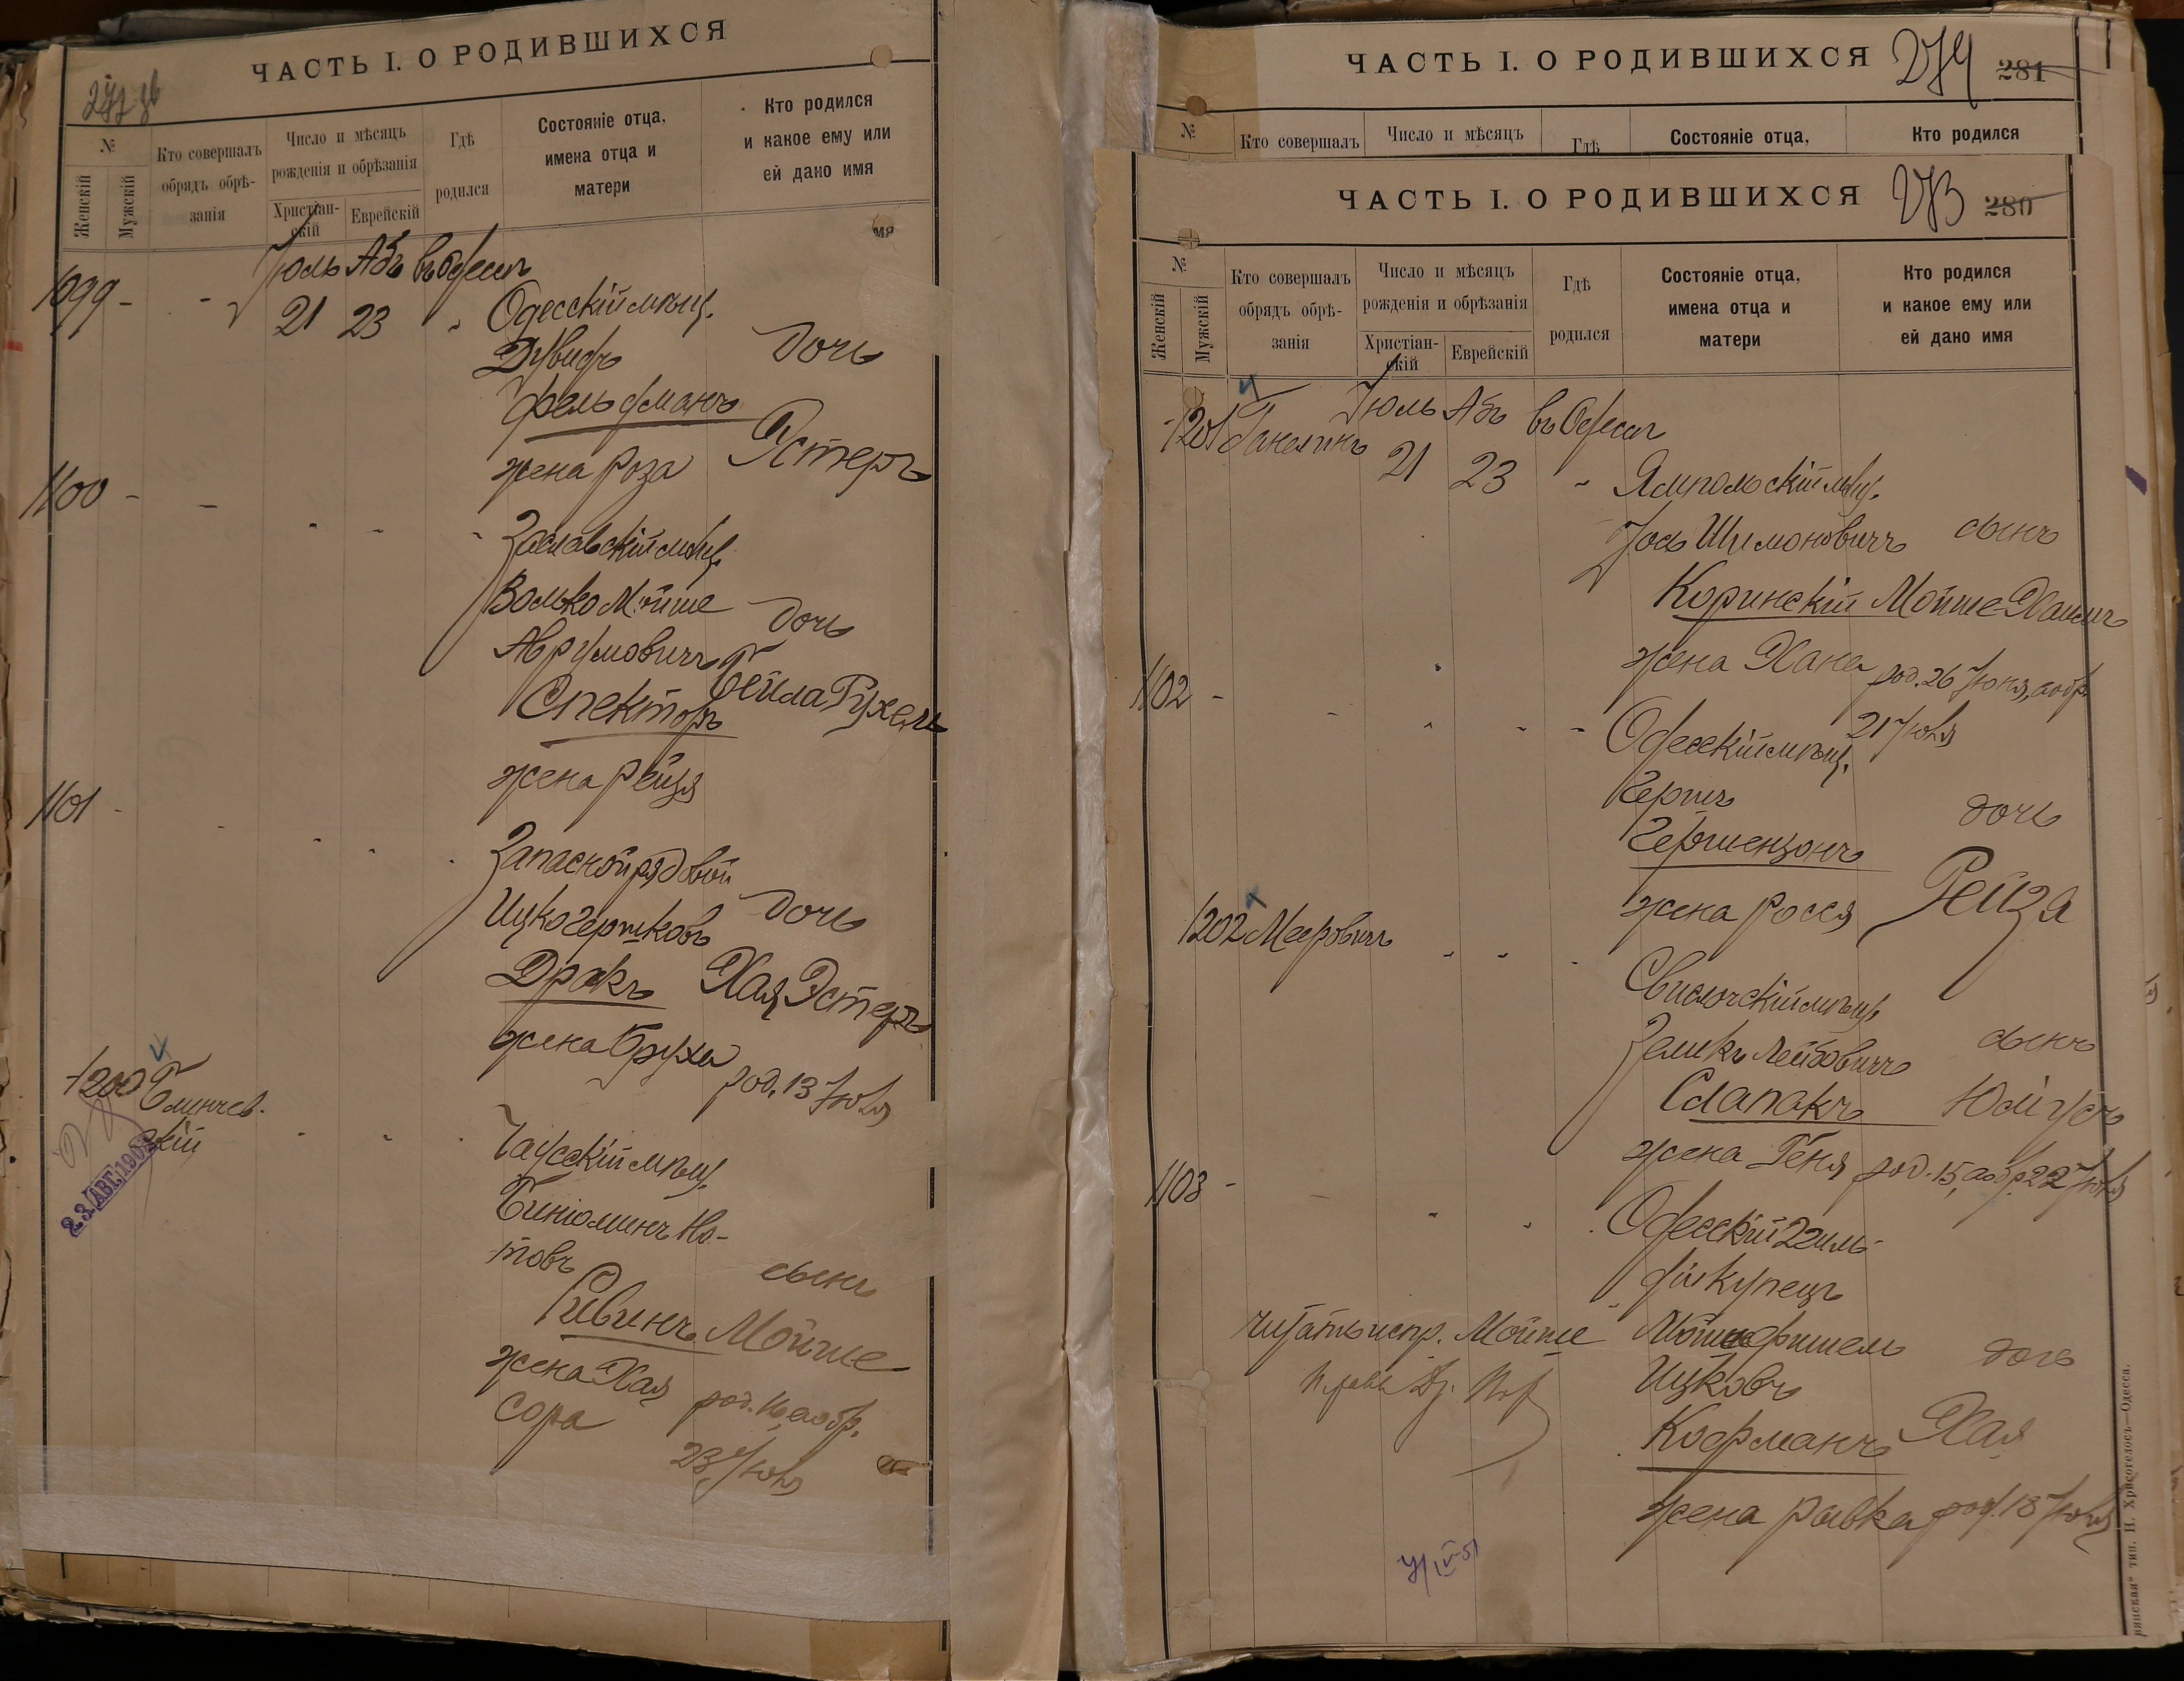 ЧАСТЬ I. О РОДИВШИХСЯ
№
Женскій
Мужскій
Кто совершалъ
обрядъ обрѣ-
занія
Число и мѣсяцъ
рожденія и обрѣзанія
Христіан-
скій
Еврейскій
Гдѣ
родился
Состояніе отца,
имена отца и
матери
Кто родился
и какое ему или
ей дано имя
Іюль Абъ въ Одессѣ
1099 - - 21 23 Одесскій мѣщ.
Дувидъ дочь
Фельдманъ
жена Роза Эстеръ
1100 - -
Заславскій мѣщ.
Волько Мойше дочь
Аврумовичъ
Спекторъ Бейла Рухель
жена Рейзя
1101 -
Запасной рядовой
Ицко Гершковъ дочь
Дракъ Хая Эстеръ
жена Бруха род. 13 Іюля
1200 Блинчев-
скій
23 АВГ. 190
Чаусскій мѣщ.
Биніоминъ Но-
товъ сынъ
Ривинъ Мойше
жена Хая род. 16, а обр.
Сора 23 Іюля
ЧАСТЬ I. О РОДИВШИХСЯ 274 281
№
Кто совершалъ
Число и мѣсяцъ
Гдѣ
Состояніе отца,
Кто родился
ЧАСТЬ I. О РОДИВШИХСЯ 273 280
№
Женскій
Мужскій
Кто совершалъ
обрядъ обрѣ-
занія
Число и мѣсяцъ
рожденія и обрѣзанія
Христіан-
скій
Еврейскій
Гдѣ
родился
Состояніе отца,
имена отца и
матери
Кто родился
и какое ему или
ей дано имя
Іюль Абъ въ Одессѣ
1201 21 23 Ямпольскій мѣщ.
Іось Шимоновичъ сынъ
Коринскій Мойше Хаимъ
жена Хана род. 26 Іюня, а обр.
21 Іюля
1102 - - Одесскій мѣщ.
Гершъ дочь
Гершензонъ
жена Росся Рейзя
1202 Меровичъ
Свислочскій мѣщ.
Зеликъ Лейбовичъ сынъ
Слапакъ Юлiусъ
жена Геня род. 15, а обр. 22 Іюля
1103 - - Одесскій 2 гиль-
діи купецъ
читать испр. Мойше Мойше Фишель дочь
Ицковъ
Кофманъ Хая
жена Ривка род. 18 Іюля